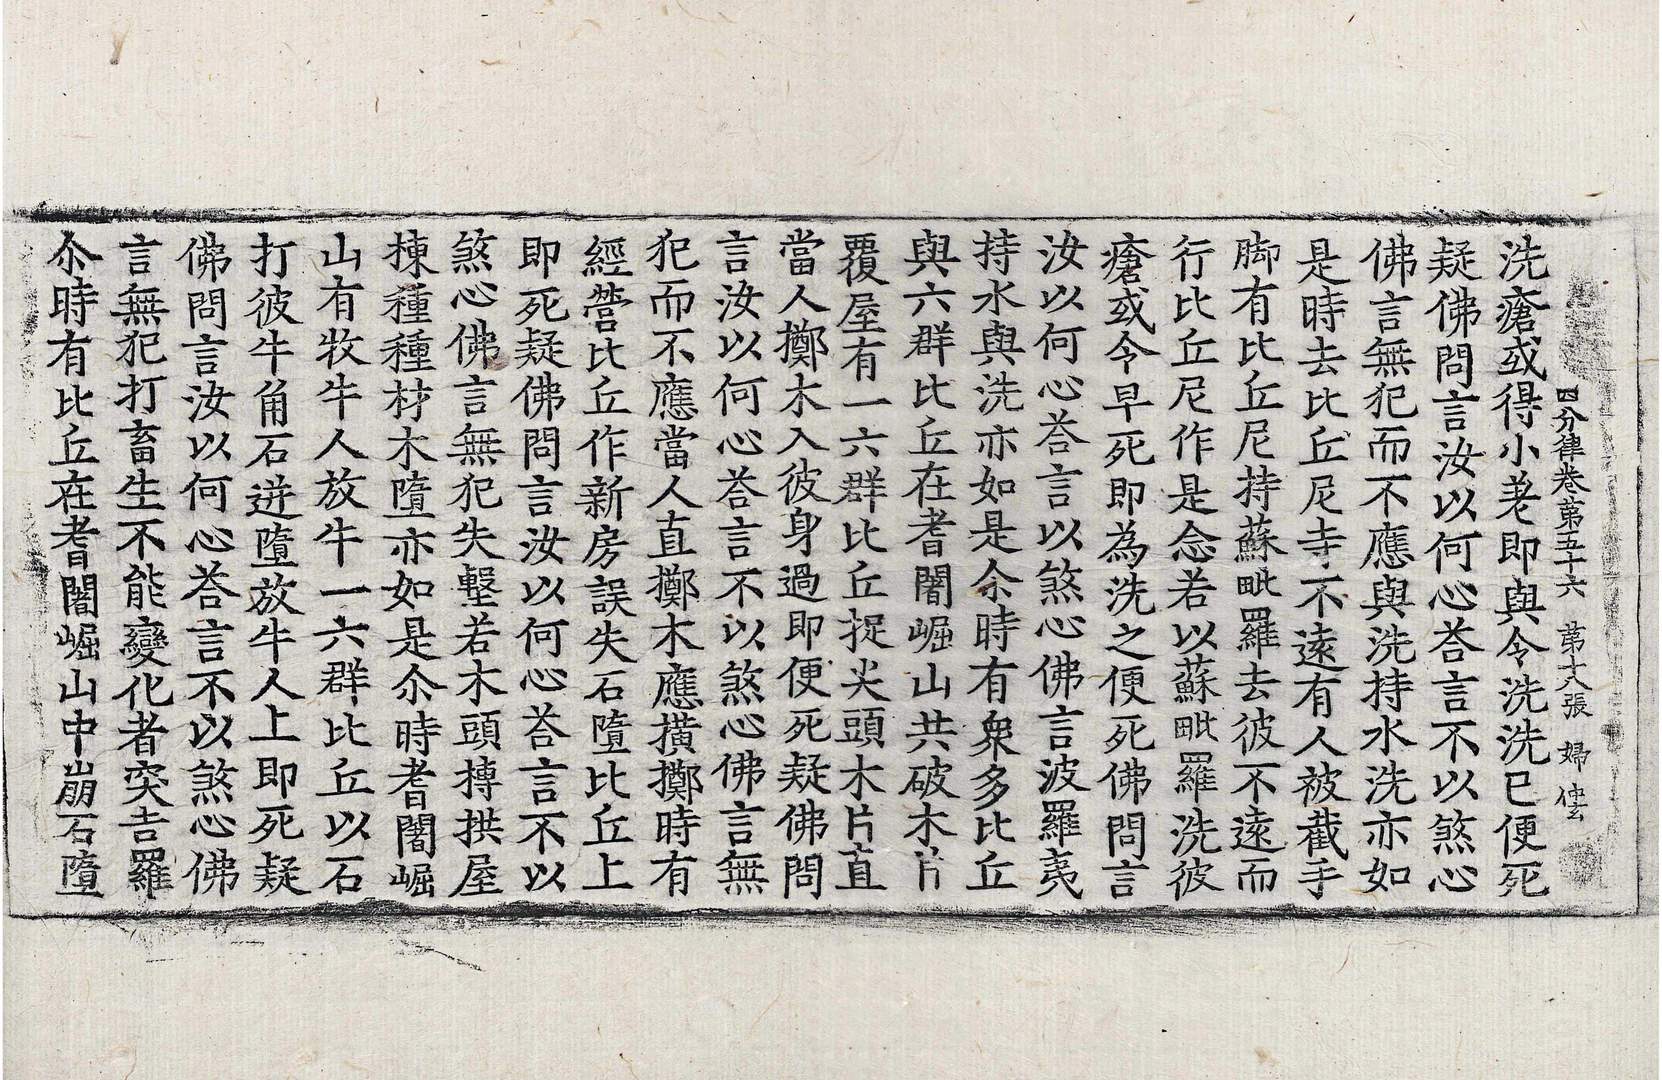 四分律卷第五十六　第十八張　婦　伝
洗瘡或得小差即與令洗洗已便死
疑佛問言汝以何心荅言不以煞心
佛言無犯而不應與洗持水洗亦如
是時去比丘尼寺不遠有人被截手
脚有比丘尼持蘇毗羅去彼不遠而
行比丘尼作是念若以蘇毗羅洗彼
瘡或令早死即為洗之便死佛問言
汝以何心荅言以煞心佛言波羅夷
持水與洗亦如是尒時有衆多比丘
與六群比丘在耆闍崛山共破木片
覆屋有一六群比丘捉尖頭木片直
當人擲木入彼身過即便死疑佛問
言汝以何心荅言不以煞心佛言無
犯而不應當人直擲木應橫擲時有
經營比丘作新房誤失石墮比丘上
即死疑佛問言汝以何心荅言不以
煞心佛言無犯失墼若木頭摶拱屋
棟種種材木墮亦如是尒時耆闍崛
山有牧牛人放牛一六群比丘以石
打彼牛角石迸墮放牛人上即死疑
佛問言汝以何心荅言不以煞心佛
言無犯打畜生不能變化者突吉羅
尒時有比丘在耆闍崛山中崩石墮